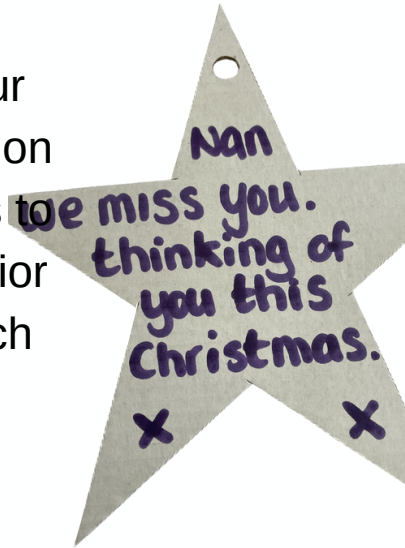 ur
on
s to
ior
ch
Nan
we miss you.
thinking of
you this
Christmas.
x x